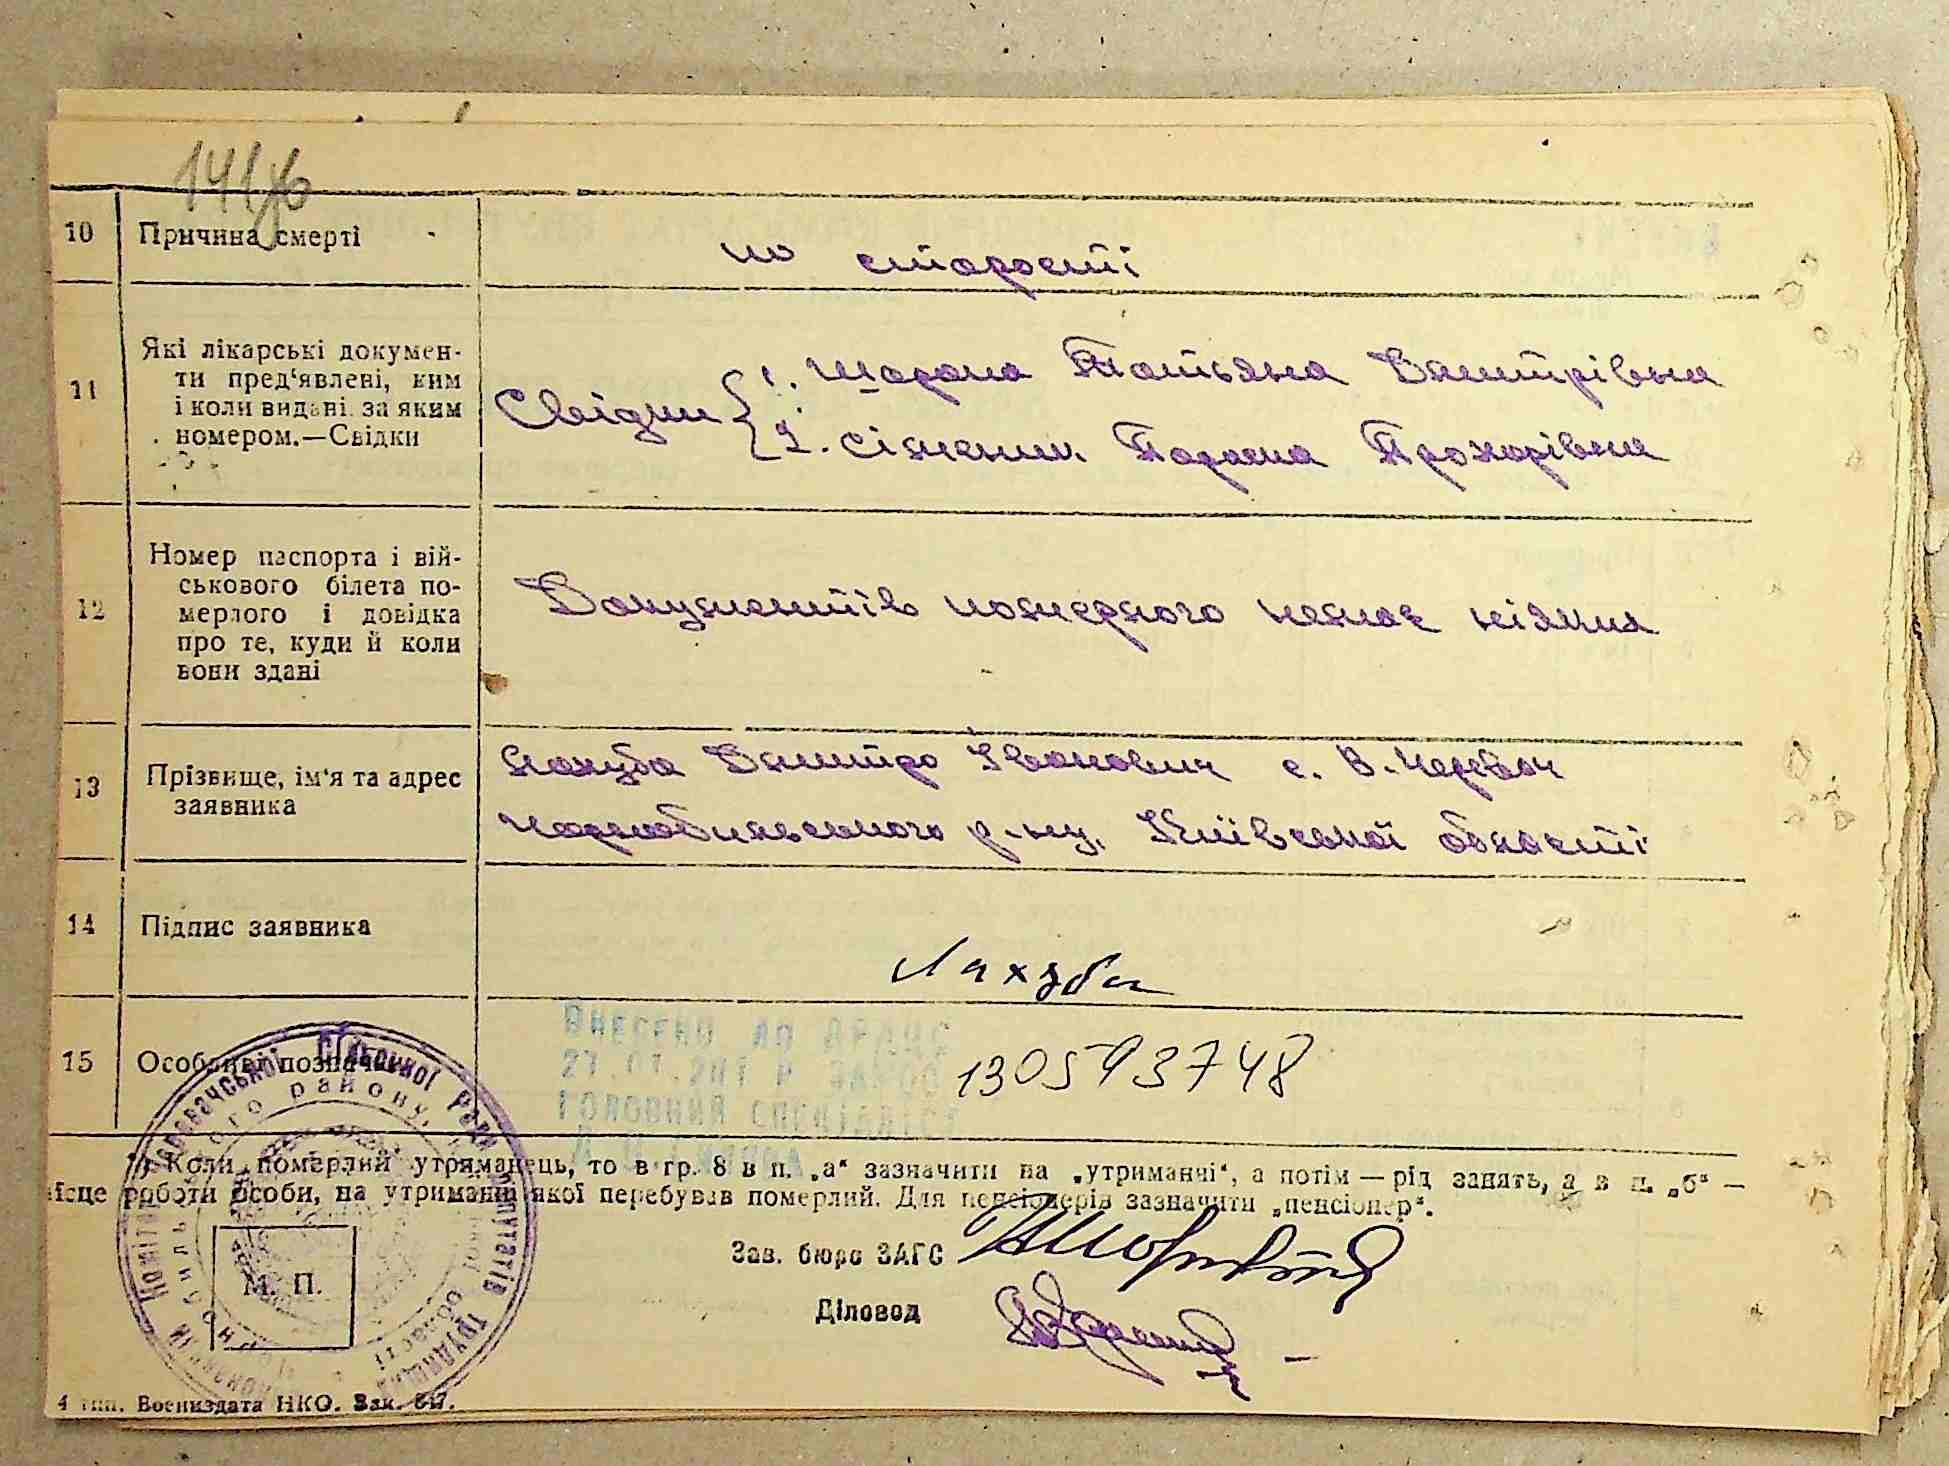 10 Причина смерті по старості
11 Які лікарські докумен-
ти пред'явлені, ким
і коли видані за яким
номером.—Свідки
Свідки 1. Шарана Татьяна Дмитрівна
2. Сіменик Параска Прохорівна
12 Номер паспорта і вій-
ськового білета по-
мерлого і довідка
про те, куди й коли
вони здані
Документів помершого немає ніяких
13 Прізвище, ім'я та адрес
заявника
Лахуба Дмитро Іванович с. В. Черевач
Чорнобильського р-ну, Київської області
14 Підпис заявника Лахуба
15 Особливі позначки
Внесено до ДРАЦС
Головний спеціаліст
130593748
*) Коли померлий утриманець, то в гр. 8 в п. „а" зазначити на „утриманчі", а потім — рід занять, а в п. „б" —
місце роботи особи, на утриманні якої перебував померлий. Для пенсіонерів зазначити „пенсіонер".
Зав. бюро ЗАГС
Діловод
М. П.
4 тип. Воениздата НКО. Зак. 647.